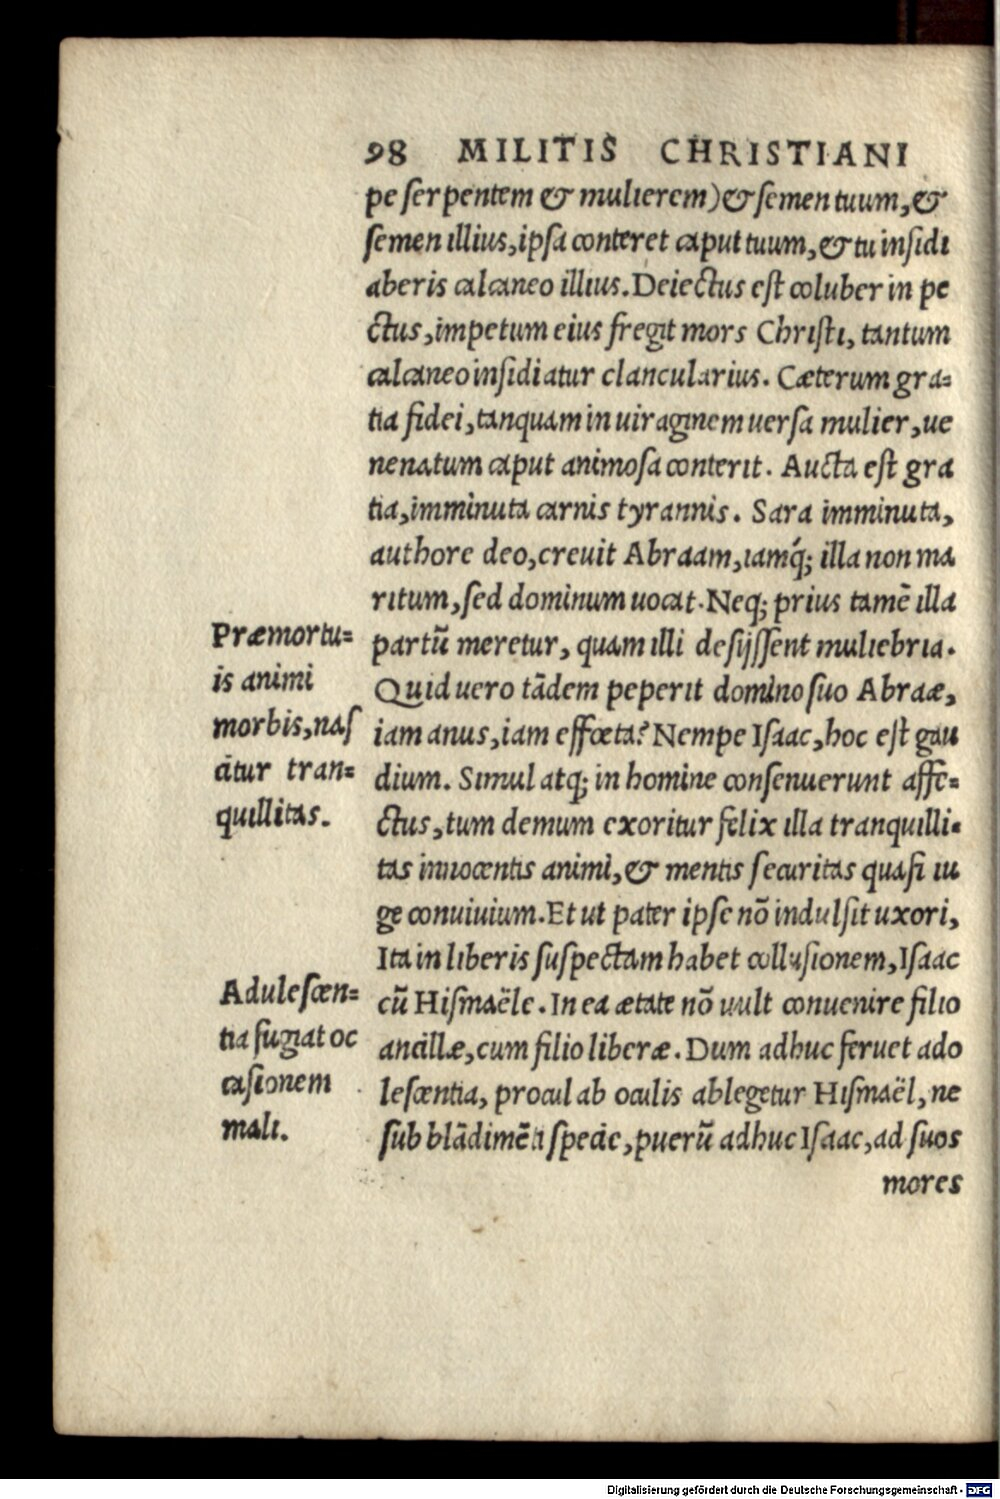 98 MILITIS CHRISTIANI
pe serpentem & mulierem) & semen tuum, &
semen illius, ipsa conteret caput tuum, & tu insidi
aberis calcaneo illius. Deiectus est coluber in pe
ctus, impetum eius fregit mors Christi, tantum
calcaneo insidiatur clancularius. Cæterum gra=
tia fidei, tanquam in uiraginem uersa mulier, ue
nenatum caput animosa conterit. Aucta est gra
tia, imminuta carnis tyrannis. Sara imminuta,
authore deo, creuit Abraam, iamq́; illa non ma
ritum, sed dominum uocat. Neq; prius tamē illa
partū meretur, quam illi desijssent muliebria.
Quid uero tādem peperit domino suo Abraæ,
iam anus, iam effœta? Nempe Isaac, hoc est gau
dium. Simul atq; in homine consenuerunt affe=
ctus, tum demum exoritur felix illa tranquilli=
tas innocentis animi, & mentis securitas quasi iu
ge conuiuium. Et ut pater ipse nō indulsit uxori,
Ita in liberis suspectam habet collusionem, Isaac
cū Hismaële. In ea ætate nō uult conuenire filio
ancillæ, cum filio liberæ. Dum adhuc feruet ado
lescentia, procul ab oculis ablegetur Hismaël, ne
sub blādimēti specie, puerū adhuc Isaac, ad suos
mores
Præmortu=
is animi
morbis, nas
citur tran=
quillitas.
Adulescen=
tia fugiat oc
casionem
mali.
Digitalisierung gefördert durch die Deutsche Forschungsgemeinschaft - DFG